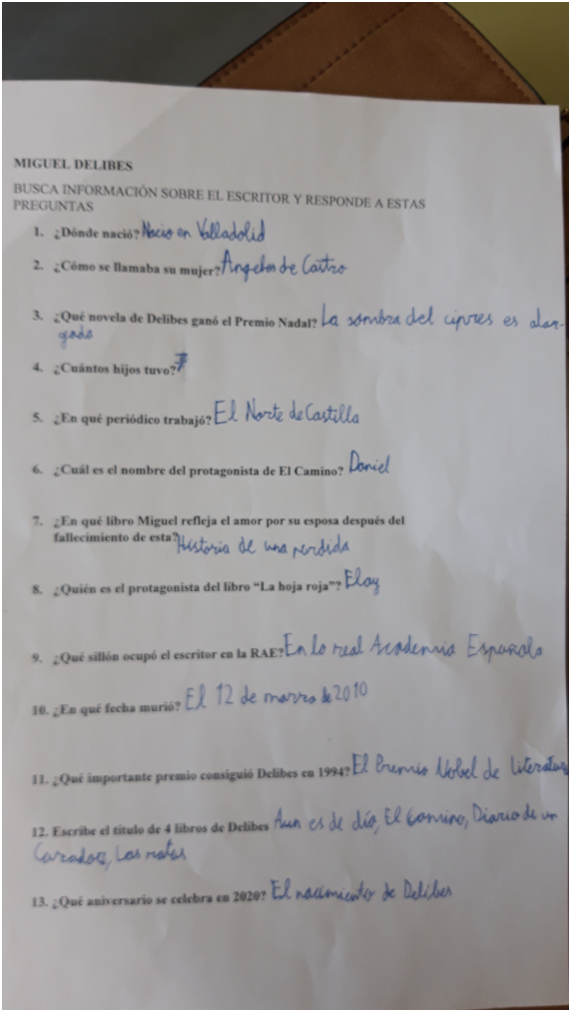 MIGUEL DELIBES
BUSCA INFORMACIÓN SOBRE EL ESCRITOR Y RESPONDE A ESTAS
PREGUNTAS
1. ¿Dónde nació? Nacio en Valladolid
2. ¿Cómo se llamaba su mujer? Angeles de Castro
3. ¿Qué novela de Delibes ganó el Premio Nadal? La sombra del cipres es alar-
gada
4. ¿Cuántos hijos tuvo? 7
5. ¿En qué periódico trabajó? El Norte de Castilla
6. ¿Cuál es el nombre del protagonista de El Camino? Daniel
7. ¿En qué libro Miguel refleja el amor por su esposa después del
fallecimiento de esta? Historia de una perdida
8. ¿Quién es el protagonista del libro “La hoja roja”? Eloy
9. ¿Qué sillón ocupó el escritor en la RAE? En la real Academia Española
10. ¿En qué fecha murió? El 12 de marzo de 2010
11. ¿Qué importante premio consiguió Delibes en 1994? El Premio Nobel de Literatura
12. Escribe el título de 4 libros de Delibes Aun es de día, El Camino, Diario de un
Cazador, Las ratas
13. ¿Qué aniversario se celebra en 2020? El nacimiento de Delibes